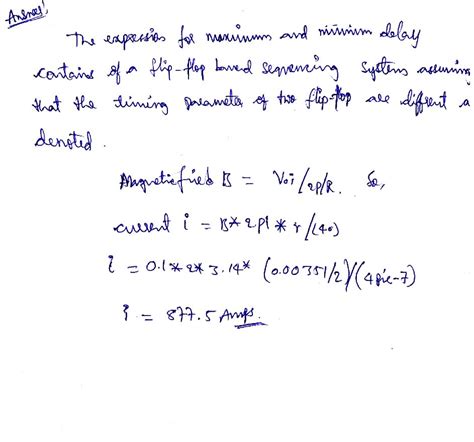 Answer:
The expression for maximum and minimum delay
contains of a flip-flop based sequencing systems assuming
that the timing parameter of two flip-flop are different a
denoted.
Magnetic field B = Voi/2p/R. So,
current i = B* 2pi * r /(40)
i = 0.1* 2* 3.14* (0.00351/2)/(4 pie-7)
i = 877.5 Amps.